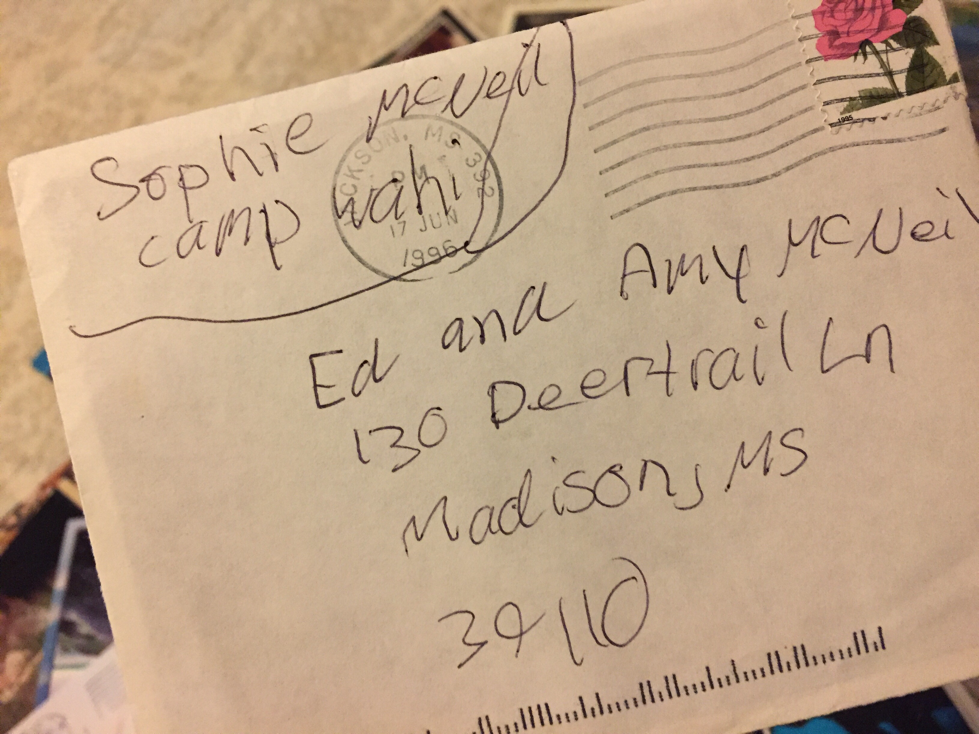 Sophie McNeil
camp wahi
JACKSON, MS 392
PM
17 JUN
1996
1995
Ed and Amy McNeil
130 Deertrail Ln
Madison, MS
39110